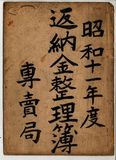 昭和十一年度
返納金整理簿
專賣局